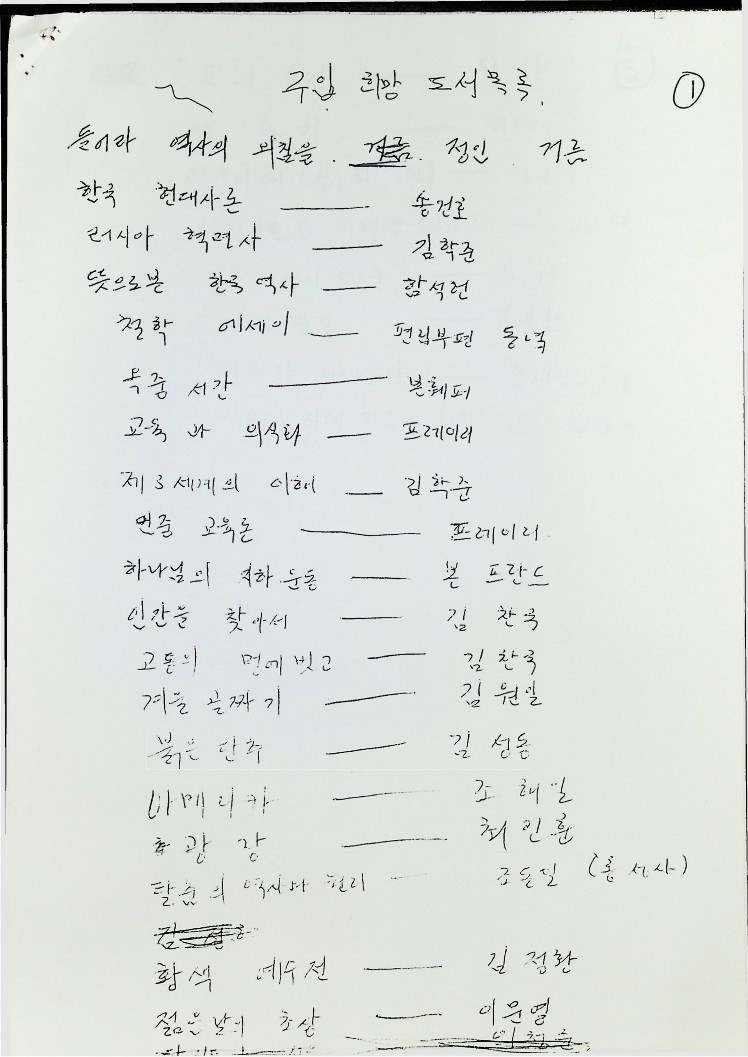 구입 희망 도서목록. ①
들어라 역사의 외침을. 정인 거름
한국 현대사론 —— 송건호
러시아 혁명사 —— 김학준
뜻으로본 한국 역사 —— 함석헌
철학 에세이 —— 편집부편 동녘
옥중 서간 —— 본회퍼
교육 과 의식화 —— 프레이리
제3세계의 이해 —— 김학준
민중 교육론 —— 프레이리
하나님의 지하 운동 —— 본 프란드
인간을 찾아서 —— 김 찬국
고통의 멍에 벗고 —— 김 찬국
겨울 골짜기 —— 김 원일
붉은 단추 —— 김 성동
아메리카 —— 조 해일
광 장 —— 최 인훈
탈춤의 역사와 원리 — 조동일 (홍성사)
황색 예수전 —— 김 정환
젊은 날의 초상 —— 이문열